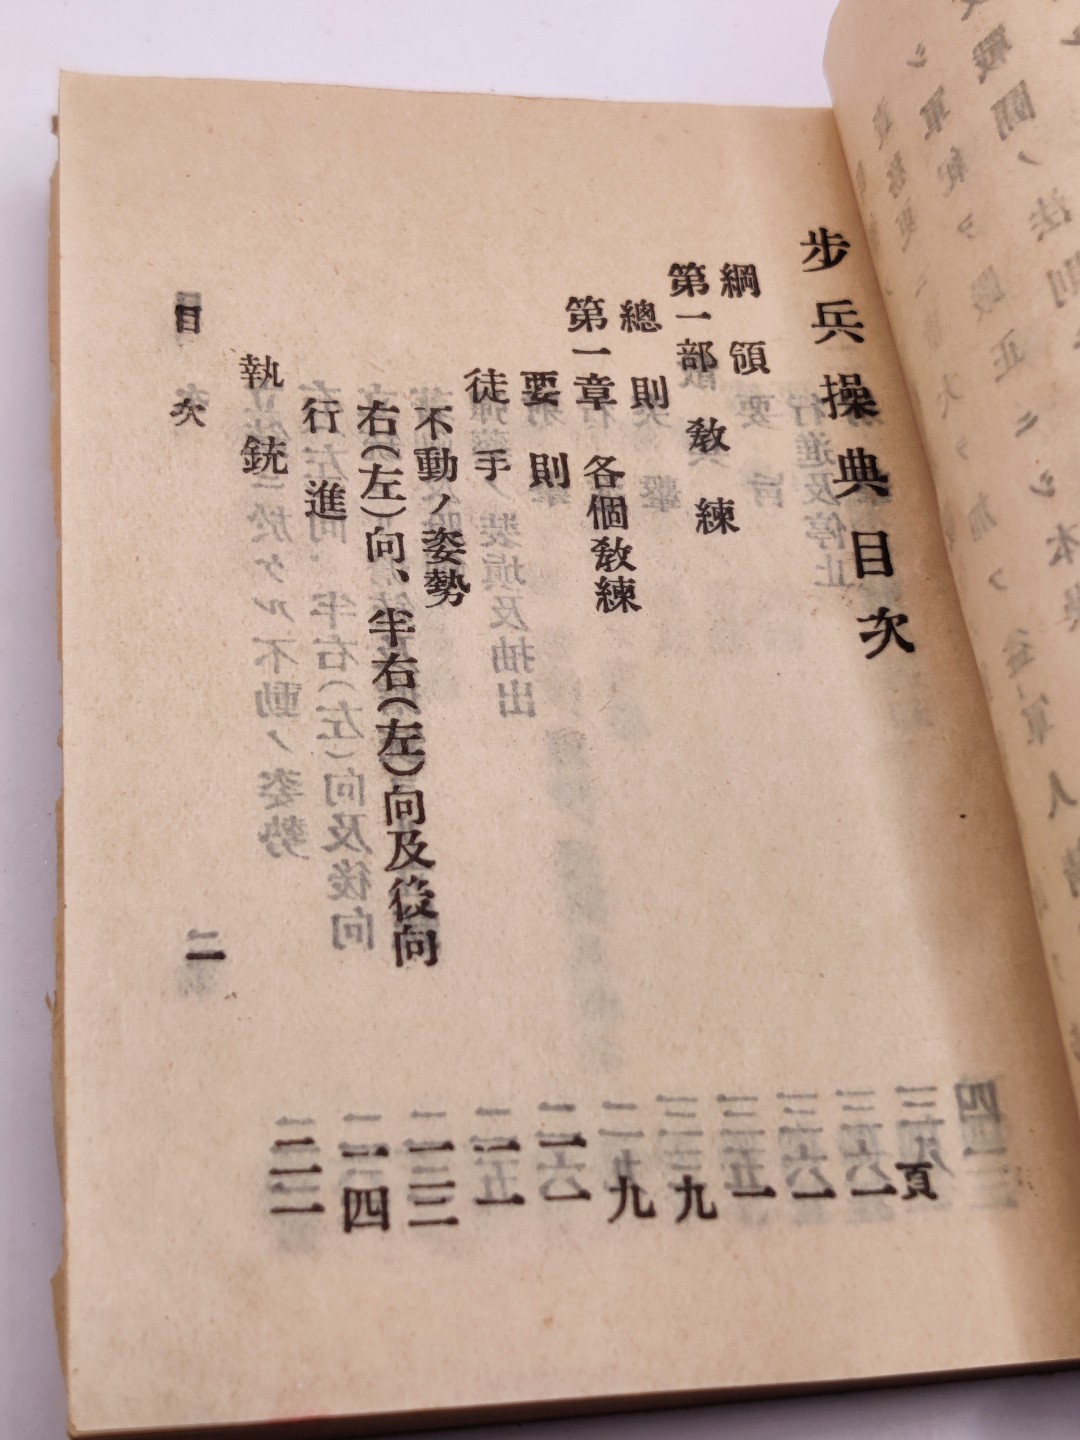 步兵操典目次
頁
綱領 一
第一部 敎練 一
總則 一
第一章 各個敎練 九
要則 九
徒手 一一
不動ノ姿勢 一一
右(左)向、半右(左)向及後向 一三
行進 一四
執銃
目次 二